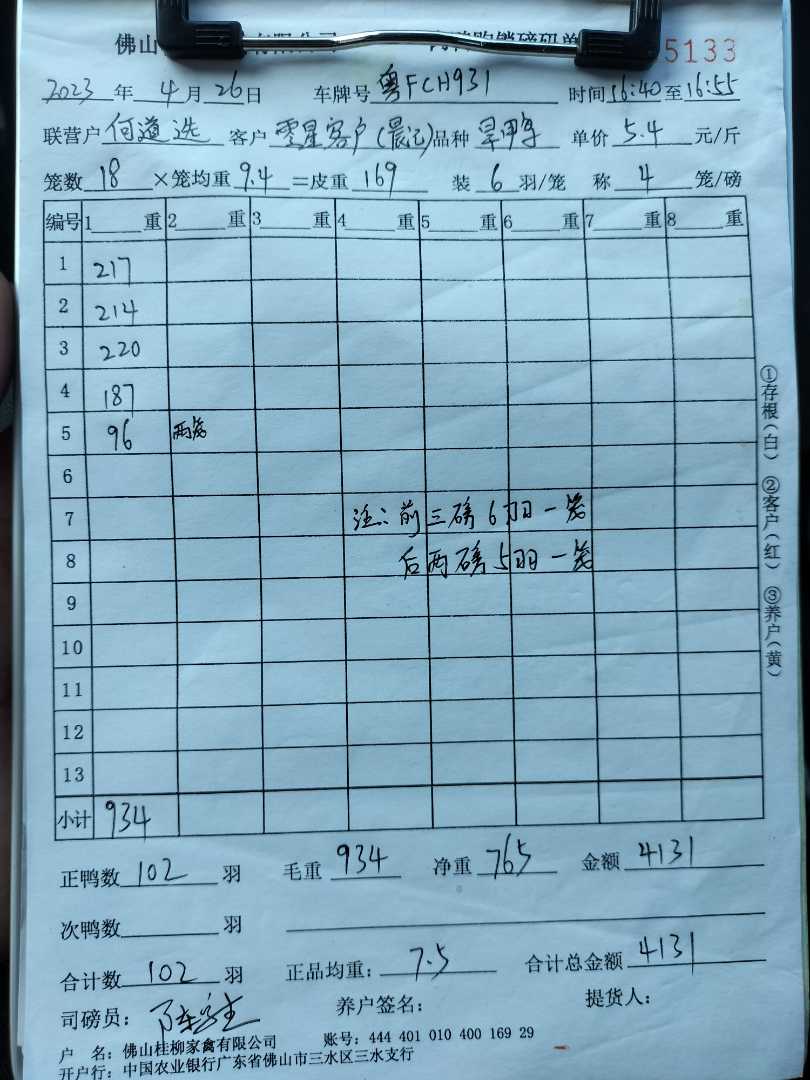 佛山 有限公司 购销磅码单 5133
2023年 4月26日 车牌号 粤FCH931 时间16:40至16:55
联营户 何道选 客户 零星客户(晨记) 品种 旱鸭 单价 5.4 元/斤
笼数 18 ×笼均重 9.4 =皮重 169 装 6 羽/笼 称 4 笼/磅
编号 1 重 2 重 3 重 4 重 5 重 6 重 7 重 8 重
1 217
2 214
3 220
4 187
5 96 两笼
6
7 注:前三磅6羽一笼
8 后两磅5羽一笼
9
10
11
12
13
小计 934
正鸭数 102 羽 毛重 934 净重 765 金额 4131
次鸭数 羽
合计数 102 羽 正品均重: 7.5 合计总金额 4131
司磅员: 养户签名: 提货人:
户 名: 佛山桂柳家禽有限公司 账号: 444 401 010 400 169 29
开户行: 中国农业银行广东省佛山市三水区三水支行
①存根(白) ②客户(红) ③养户(黄)